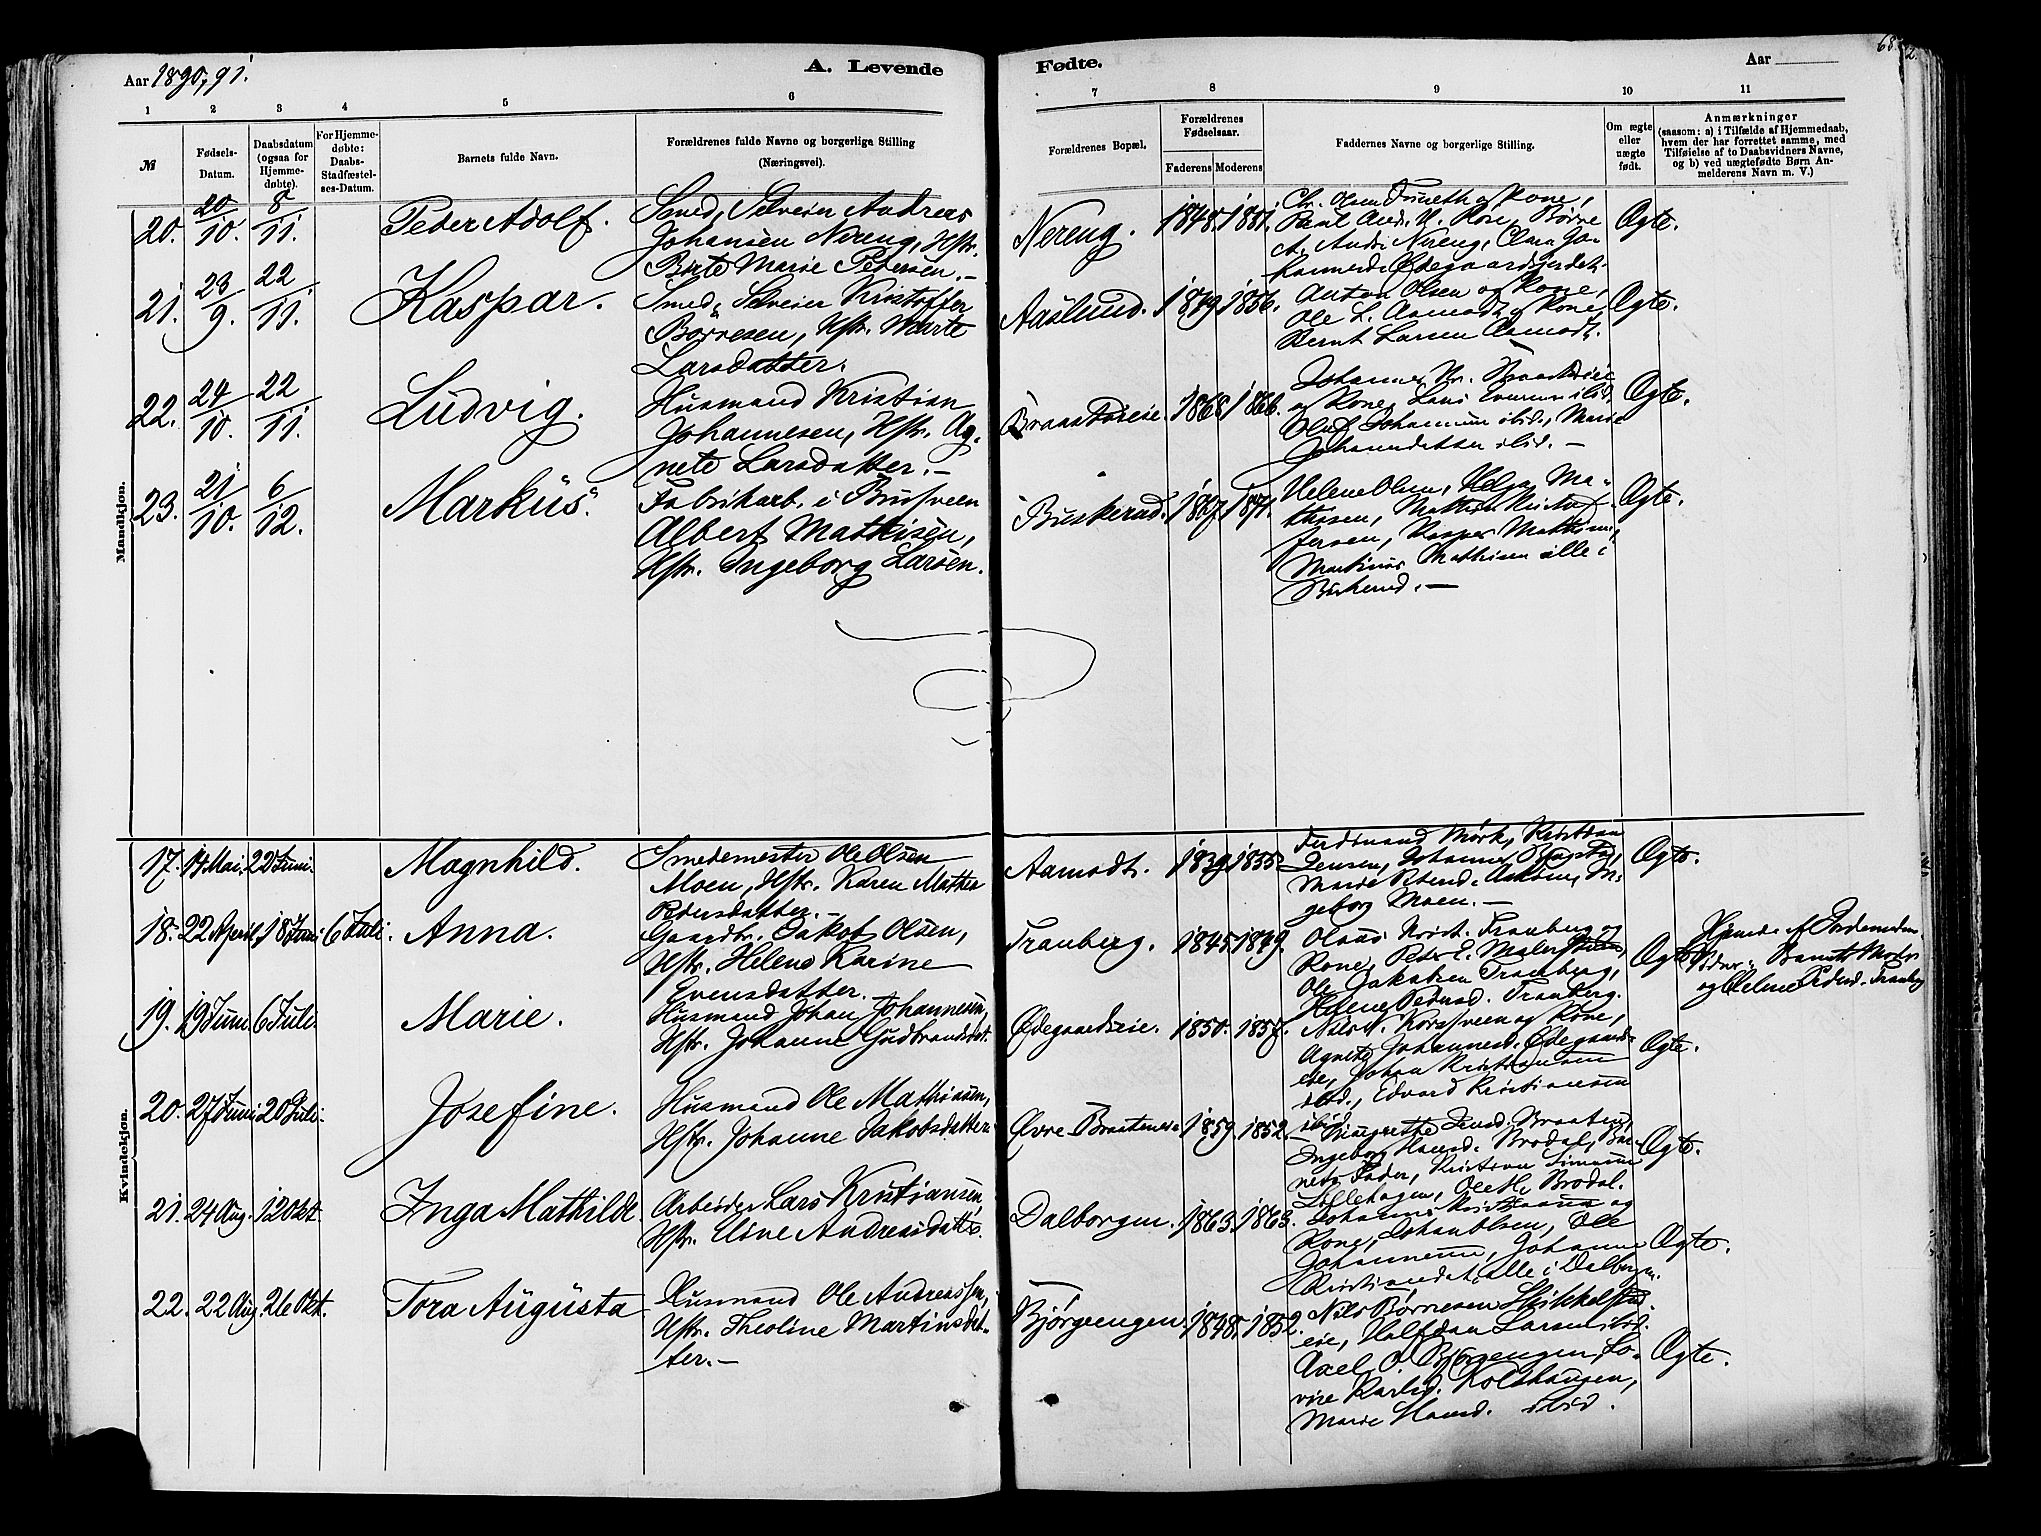 Aar 1890, 91.
A. Levende
Fødte.
Aar
68
1
2
3
4
5
6
7
8
9
10
11
№
Fødsels-
Datum.
Daabsdatum
(ogsaa for
Hjemme-
døbte).
For Hjemme-
døbte:
Daabs-
Stadfæstel-
ses-Datum.
Barnets fulde Navn.
Forældrenes fulde Navne og borgerlige Stilling
(Næringsvei).
Forældrenes Bopæl.
Forældrenes
Fødselsaar.
Faderens
Moderens
Faddernes Navne og borgerlige Stilling.
Om ægte
eller
uægte
født.
Anmærkninger
(saasom: a) i Tilfælde af Hjemmedaab,
hvem der har forrettet samme, med
Tilføielse af to Daabsvidners Navne,
og b) ved uægtefødte Børn An-
melderens Navn m. V.)
Mandkjøn.
20.
20/10.
8/11.
Peder Adolf.
Smed, Selveier Andreas
Johansen Nereng, Hstr.
Birte Marie Petersen.-
Nereng.
1848.
1851.
Chr. Olsen og Kone,
Paul And. N. Kone, Børre
A. Andr. Nereng, Clara Jo-
hannesd. Ødegaardsjordet.
Ægte.
21.
23/9.
22/11.
Kaspar.
Smed, Selveier Kristoffer
Børresen, Hstr. Marte
Larsdatter.
Aaslund.
1849
1856.
Anton Olsen og Kone,
Ole L. Aamodt og Kone,
Bernt Larsen Aamodt.
Ægte.
22.
24/10.
22/11.
Ludvig.
Husmand Kristian
Johannesen, Hstr. Ag-
nete Larsdatter.-
1868
1866.
og Kone, Lars Evensen ibid.
Oluf Johannesen ibid., Marie
Johannesdatter ibid.-
Ægte.
23.
21/10.
6/12.
Markus.
Fabrikarb. i Brufveen
Albert Mathisen,
Hstr. Ingeborg Larsen.
Buskerud.
1867
1871.
Helene Olsen, Helga Ma-
thisen, Mathias Kristof-
fersen, Kasper Mathisen,
Markus Mathisen alle i
Buskerud.-
Ægte.
Kvindekjøn.
17.
14 Mai.
22 Juni.
Magnhild.
Smedemester Ole Olsen
Moen, Hstr. Karen Mathea
Pedersdatter.-
Aamodt.
1839
1855
Ferdinand Mørk, Kristian
Jensen, Johannes
Marie Petersd. In-
geborg Moen.-
Ægte.
18.
22 April.
18 Juni
6 Juli.
Anna.
Gaardbr. Jakob Olsen,
Hstr. Helene Karine
Evensdatter.-
Tranberg.
1845
1849.
Olaus Krist. Tranberg og
Kone, Peter E.
Ole Jakobsen Tranberg,
Helene Pedersd. Tranberg.
Ægte.
Hjemd. af Jordemoder
Vidner: Barnets Moder
og Helene Pedersd. Tranberg
19.
19 Juni.
6 Juli.
Marie.
Husmand Johan Johannesen,
Hstr. Johanne Gudbrandsdat.
Ødegaardseie.
1850.
1857.
Nils og Kone,
Agnete Johannesd. Ødegaards-
eie, Johan Kristiansen
ibid., Edvard Kristiansen
ibid.
Ægte.
20.
27 Juni
20 Juli.
Josefine.
Husmand Ole Mathisen,
Hstr. Johanne Jakobsdatter.
Øvre Braateneie
1859.
1852.
Ingeborg Hansd. Brodal, Bar-
nets Fader, Kristian Simensen
Lillehagen, Ole H. Brodal.
Ægte.
21.
24 Aug.
12 Okt.
Inga Mathilde.
Arbeider Lars Kristiansen,
Hstr. Eline Andreasdatter.
Dalborgen.
1863.
1863.
Johannes Kristiansen og
Kone, Johan Olsen, Ole
Johannesen, Johanne
Kristiansdat. alle i Dalborgen.
Ægte.
22.
22 Aug.
26 Okt.
Tora Augusta
Husmand Ole Andreassen,
Hstr. Theoline Martinsdat-
ter.-
Bjørgeengen.
1848.
1852.
Nils Børresen Skikkelstad-
eie, Halfdan Larsen ibid.
Axel O. Bjørgeengen, Lo-
vise Karlsd. Kolshaugen,
Marie Hansd. ibid.
Ægte.